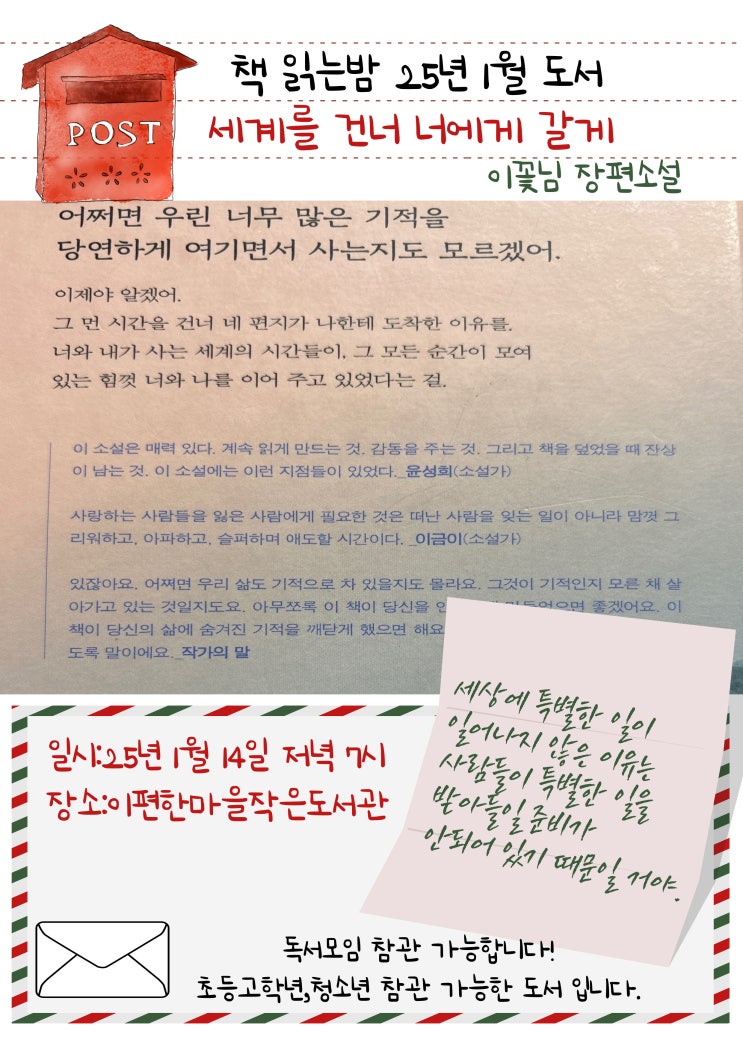 책 읽는밤 25년 1월 도서
POST
세계를 건너 너에게 갈게
이꽃님 장편소설
어쩌면 우린 너무 많은 기적을
당연하게 여기면서 사는지도 모르겠어.
이제야 알겠어.
그 먼 시간을 건너 네 편지가 나한테 도착한 이유를.
너와 내가 사는 세계의 시간들이, 그 모든 순간이 모여
있는 힘껏 너와 나를 이어 주고 있었다는 걸.
이 소설은 매력 있다. 계속 읽게 만드는 것. 감동을 주는 것. 그리고 책을 덮었을 때 잔상
이 남는 것. 이 소설에는 이런 지점들이 있었다._윤성희(소설가)
사랑하는 사람들을 잃은 사람에게 필요한 것은 떠난 사람을 잊는 일이 아니라 맘껏 그
리워하고, 아파하고, 슬퍼하며 애도할 시간이다. _이금이(소설가)
있잖아요. 어쩌면 우리 삶도 기적으로 차 있을지도 몰라요. 그것이 기적인지 모른 채 살
아가고 있는 것일지도요. 아무쪼록 이 책이 당신을 좋겠어요. 이
책이 당신의 삶에 숨겨진 기적을 깨닫게 했으면 해요
도록 말이에요._작가의 말
세상에 특별한 일이
일어나지 않은 이유는
사람들이 특별한 일을
받아들일 준비가
안되어 있기 때문일 거야.
일시:25년 1월 14일 저녁 7시
장소:이편한마을작은도서관
독서모임 참관 가능합니다!
초등고학년,청소년 참관 가능한 도서 입니다.